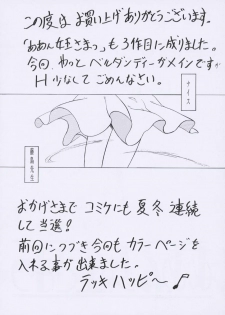 この度は お買い上げ ありがとうございます。
「ああん女王さまっ」も 3作目に成りました。
今回、やっと ベルダンディーがメインですが
H 少なくて ごめんなさい。
ナイス
藤島先生
おかげさまで コミケにも 夏冬 連続
して当選!
前回につづき今回も カラーページを
入れる事が出来ました。
ラッキハッピ〜♪